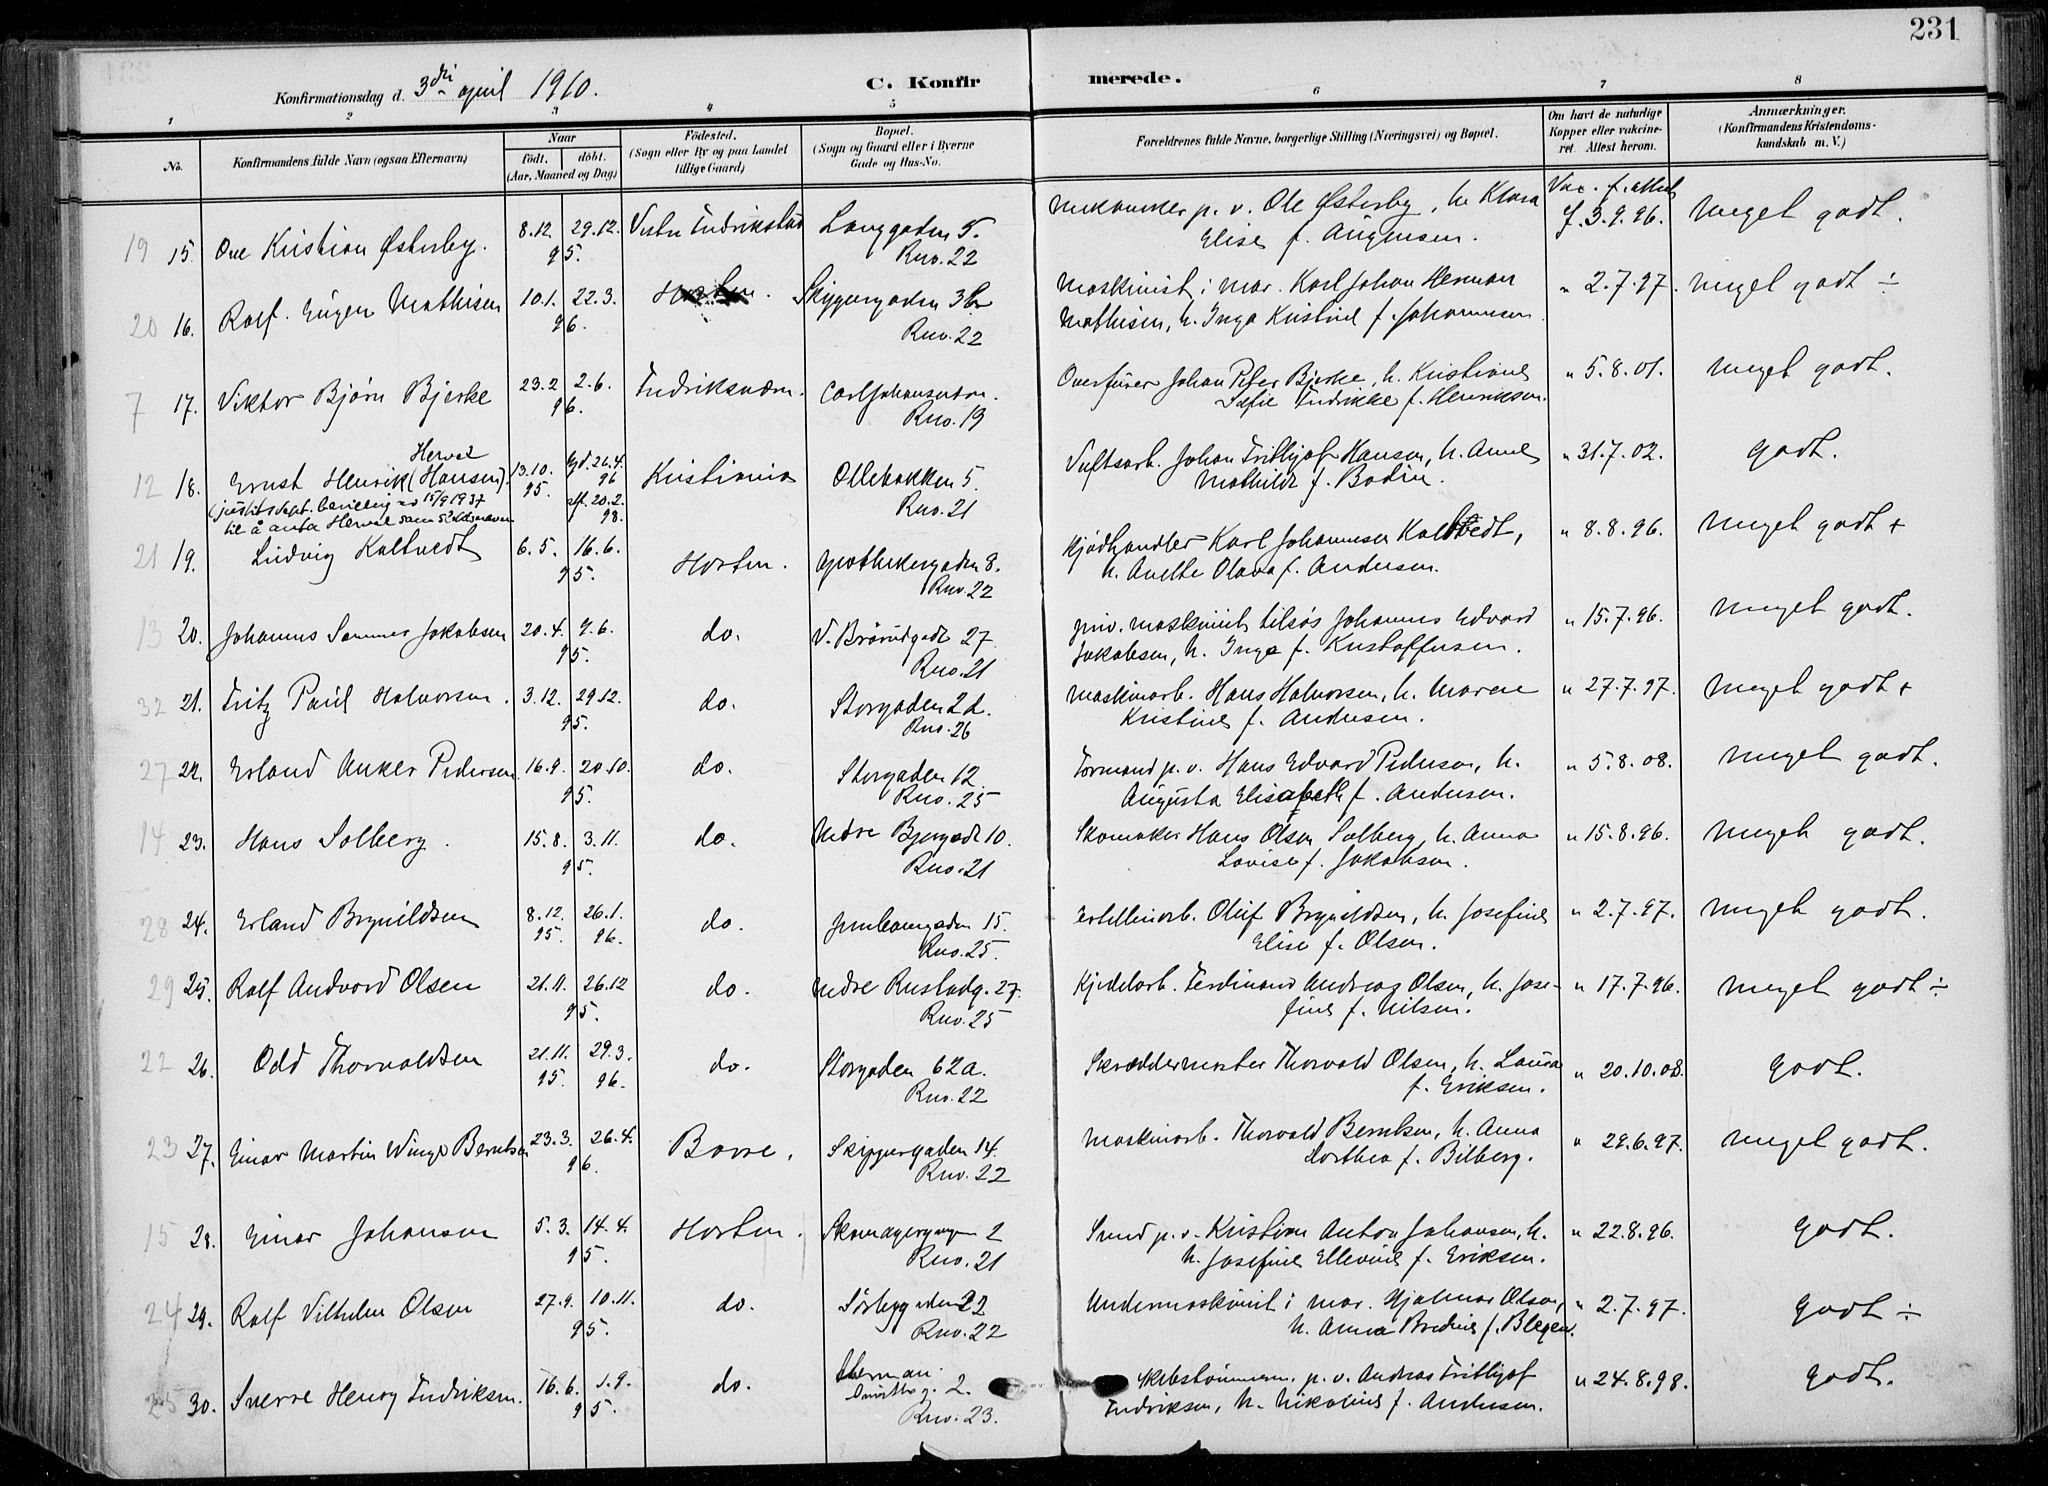 231
Konfirmationsdag d. 3die april 1910.
C. Konfirmerede.
1 2 3 4 5 6 7 8
No.
Konfirmandens fulde Navn (ogsaa Efternavn)
Naar
født. døbt.
(Aar, Maaned og Dag)
Fødested.
(Sogn eller By og paa Landet
tillige Gaard)
Bopæl.
(Sogn og Gaard eller i Byerne
Gade og Hus-No.
Forældrenes fulde Navne, borgerlige Stilling (Næringsvei) og Bopæl.
Om havt de naturlige
Kopper eller vakcine-
ret. Attest herom.
Anmærkninger.
(Konfirmandens Kristendoms-
kundskab m. V.)
19 15. Ove Kristian Østerby. 8.12. 29.12. 95. Langgaden 5. Rno. 22
p. v. Ole Østerby, h. Klara
Elise f. Augensen.
Vac. f. attest
3.9.96. Meget godt.
20 16. Rolf Eugen Mathisen 10.1. 22.3. 96. Horten. Skippergaden Rno. 22
Maskinist i mar. Karl Johan Herman
Mathisen, h. Inga Kristine f. Johannesen.
" 2.7.97. Meget godt ÷
7 17. Viktor Bjørn Bjerke 23.2 2.6. 96. Fredriksværn. Rno. 19
Johan Peter Bjerke, h. Kristiane
Sofie Fredrikke f. Henriksen.
" 5.8.01. Meget godt.
12 18. Ernst Henrik (Hansen) Hervel
(justitsdept. bevilling av 15/9 1937
til å anta Hervel som slektsnavn
13.10. 95. 26.4. 96 20.2. 98. Kristiania Ollebakken 5. Rno. 21
Johan Frithjof Hansen, h. Anne
Mathilde f. Bodin.
" 31.7.02. godt.
21 19. Ludvig Kaltvedt 6.5. 16.6. 95. Horten. Apothekergaden 8. Rno. 22
Kjødhandler Karl Johannesen Kaltvedt,
h. Anette Olava f. Andersen.
" 8.8.96. Meget godt +
13 20. Johannes Sommer Jakobsen 20.4. 9.6. 95. do. V. Brårudgadt 27. Rno. 21
priv. maskinist tilsøs Johannes Edvard
Jakobsen, h. Inga f. Kristoffersen.
" 15.7.96. Meget godt.
32 21. Fritz Paul Halvorsen. 3.12. 29.12. 95. do. Storgaden 2d. Rno. 26
Maskinarb. Hans Halvorsen, h. Maren
Kristine f. Andersen.
" 27.7.97. Meget godt +
27 22. Erland Anker Pedersen 16.9. 20.10. 95. do. Storgaden 12. Rno. 25
Formand p. v. Hans Edvard Pedersen, h.
Augusta Elisabeth f. Andersen.
" 5.8.08. Meget godt.
14 23. Hans Solberg. 15.8. 3.11. 95. do. Nedre Bjergadt 10. Rno. 21
Skomaker Hans Olsen Solberg, h. Anna
Lovise f. Jakobsen.
" 15.8.96. Meget godt.
28 24. Erland Brynildsen 8.12. 95. 26.1. 96. do. Jernbanegaden 15. Rno. 25.
Oluf Brynildsen, h. Josefine
Elise f. Olsen.
" 2.7.97. Meget godt.
29 25. Rolf Andvord Olsen 21.11. 26.12 95. do. Nedre Rustadg. 27. Rno. 25
Kjedelarb. Ferdinand Andreas Olsen, h. Jose-
fine f. Nilsen.
" 17.7.96. Meget godt ÷
22 26. Odd Thorvaldsen 21.11. 95. 29.3. 96. do. Storgaden 62a. Rno. 22
Skræddermester Thorvald Olsen, h. Laura
f. Eriksen.
" 20.10.08. Godt.
23 27. Einar Martin Winge Berntsen 23.3. 26.4. 96. Borre. Skippergaden 14. Rno. 22
Maskinarb. Thorvald Berntsen, h. Anna
Dorthea f. Bilberg.
" 29.6.97. Meget godt.
15 28. Einar Johansen 5.3. 14.4. 95. Horten. 2 Rno. 21
Smed p. v. Kristian Anton Johansen, h.
h. Josefine Ellevine f. Eriksen.
" 22.8.96. Godt.
24 29. Rolf Vilhelm Olsen 27.9. 10.11. 95. do. 22 Rno. 22
Undermaskinist i mar. Hjalmar Olsen,
h. Anna Bredine f. Blegen.
" 2.7.97. Godt ÷
25 30. Sverre Henry Fredriksen. 16.6. 1.9. 95. do. 2. Rno. 23.
p. v. Andreas Frithjof
Fredriksen, h. Nikoline f. Andersen.
" 24.8.98. Godt.